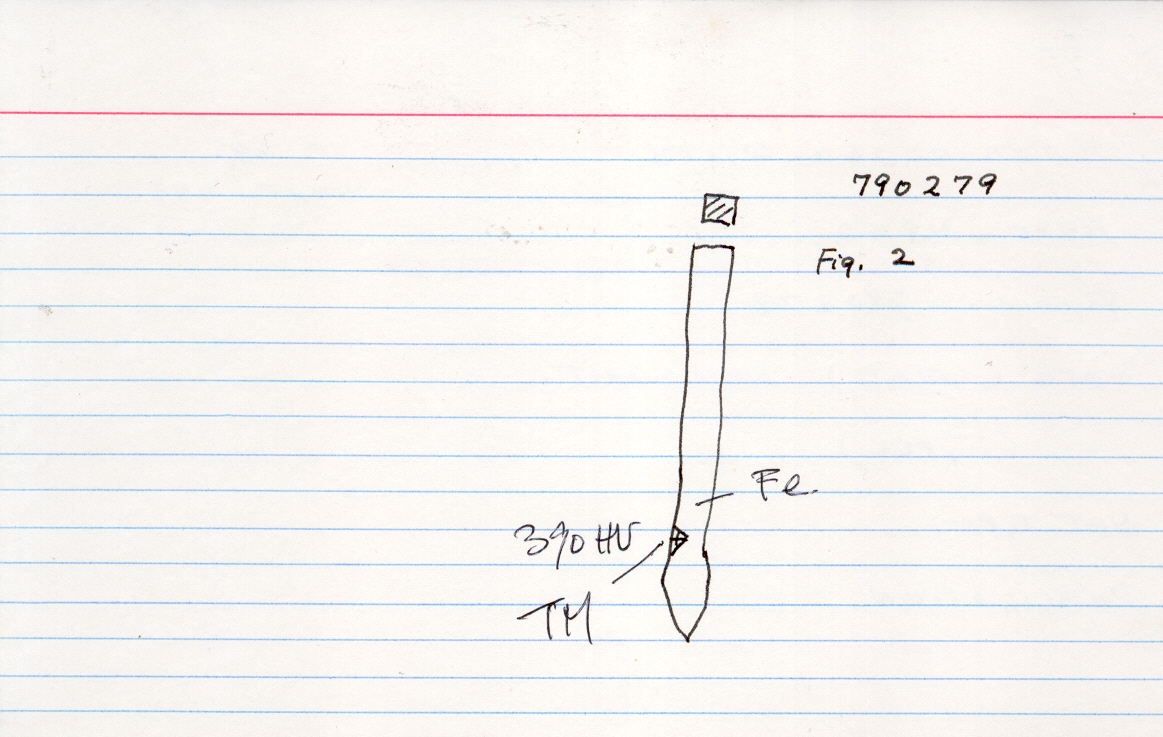 790279
Fig. 2
Fe
390 HV
TM